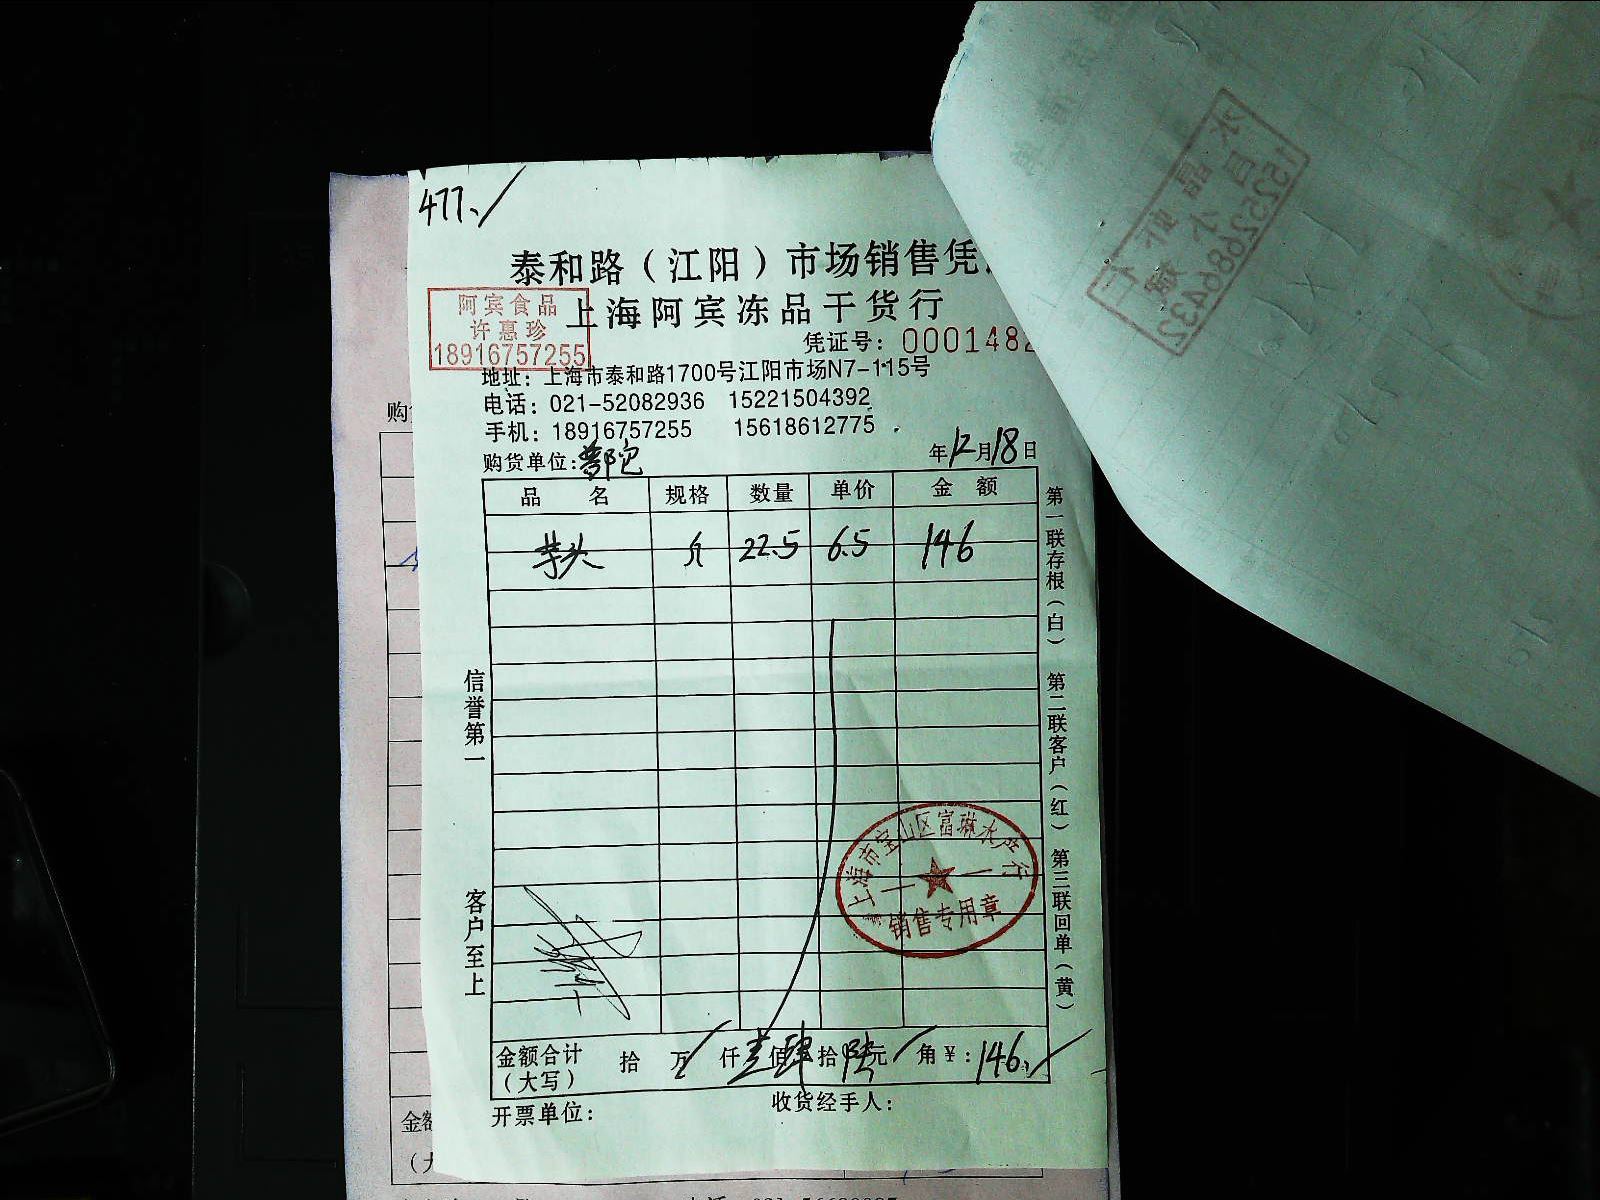 477.
泰和路（江阳）市场销售凭
上海阿宾冻品干货行
阿宾食品
许惠珍
18916757255
凭证号：0001482
地址：上海市泰和路1700号江阳市场N7-115号
电话：021-52082936 15221504392
手机：18916757255 15618612775
购货单位：普陀 年12月18日
品名 规格 数量 单价 金额
芋头 斤 22.5 6.5 146
信誉第一
客户至上
第一联存根（白） 第二联客户（红） 第三联回单（黄）
上海市宝山区富琳水产行
销售专用章
金额合计（大写） 拾 万 仟 壹佰 肆拾 陆元 角 ￥：146.
开票单位： 收货经手人：
水晶虾仁
昌小梅
15252686432
购
金额
（大